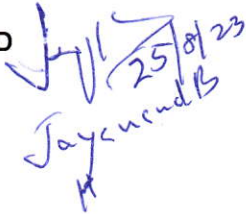 D
25/8/23
Jayanand B